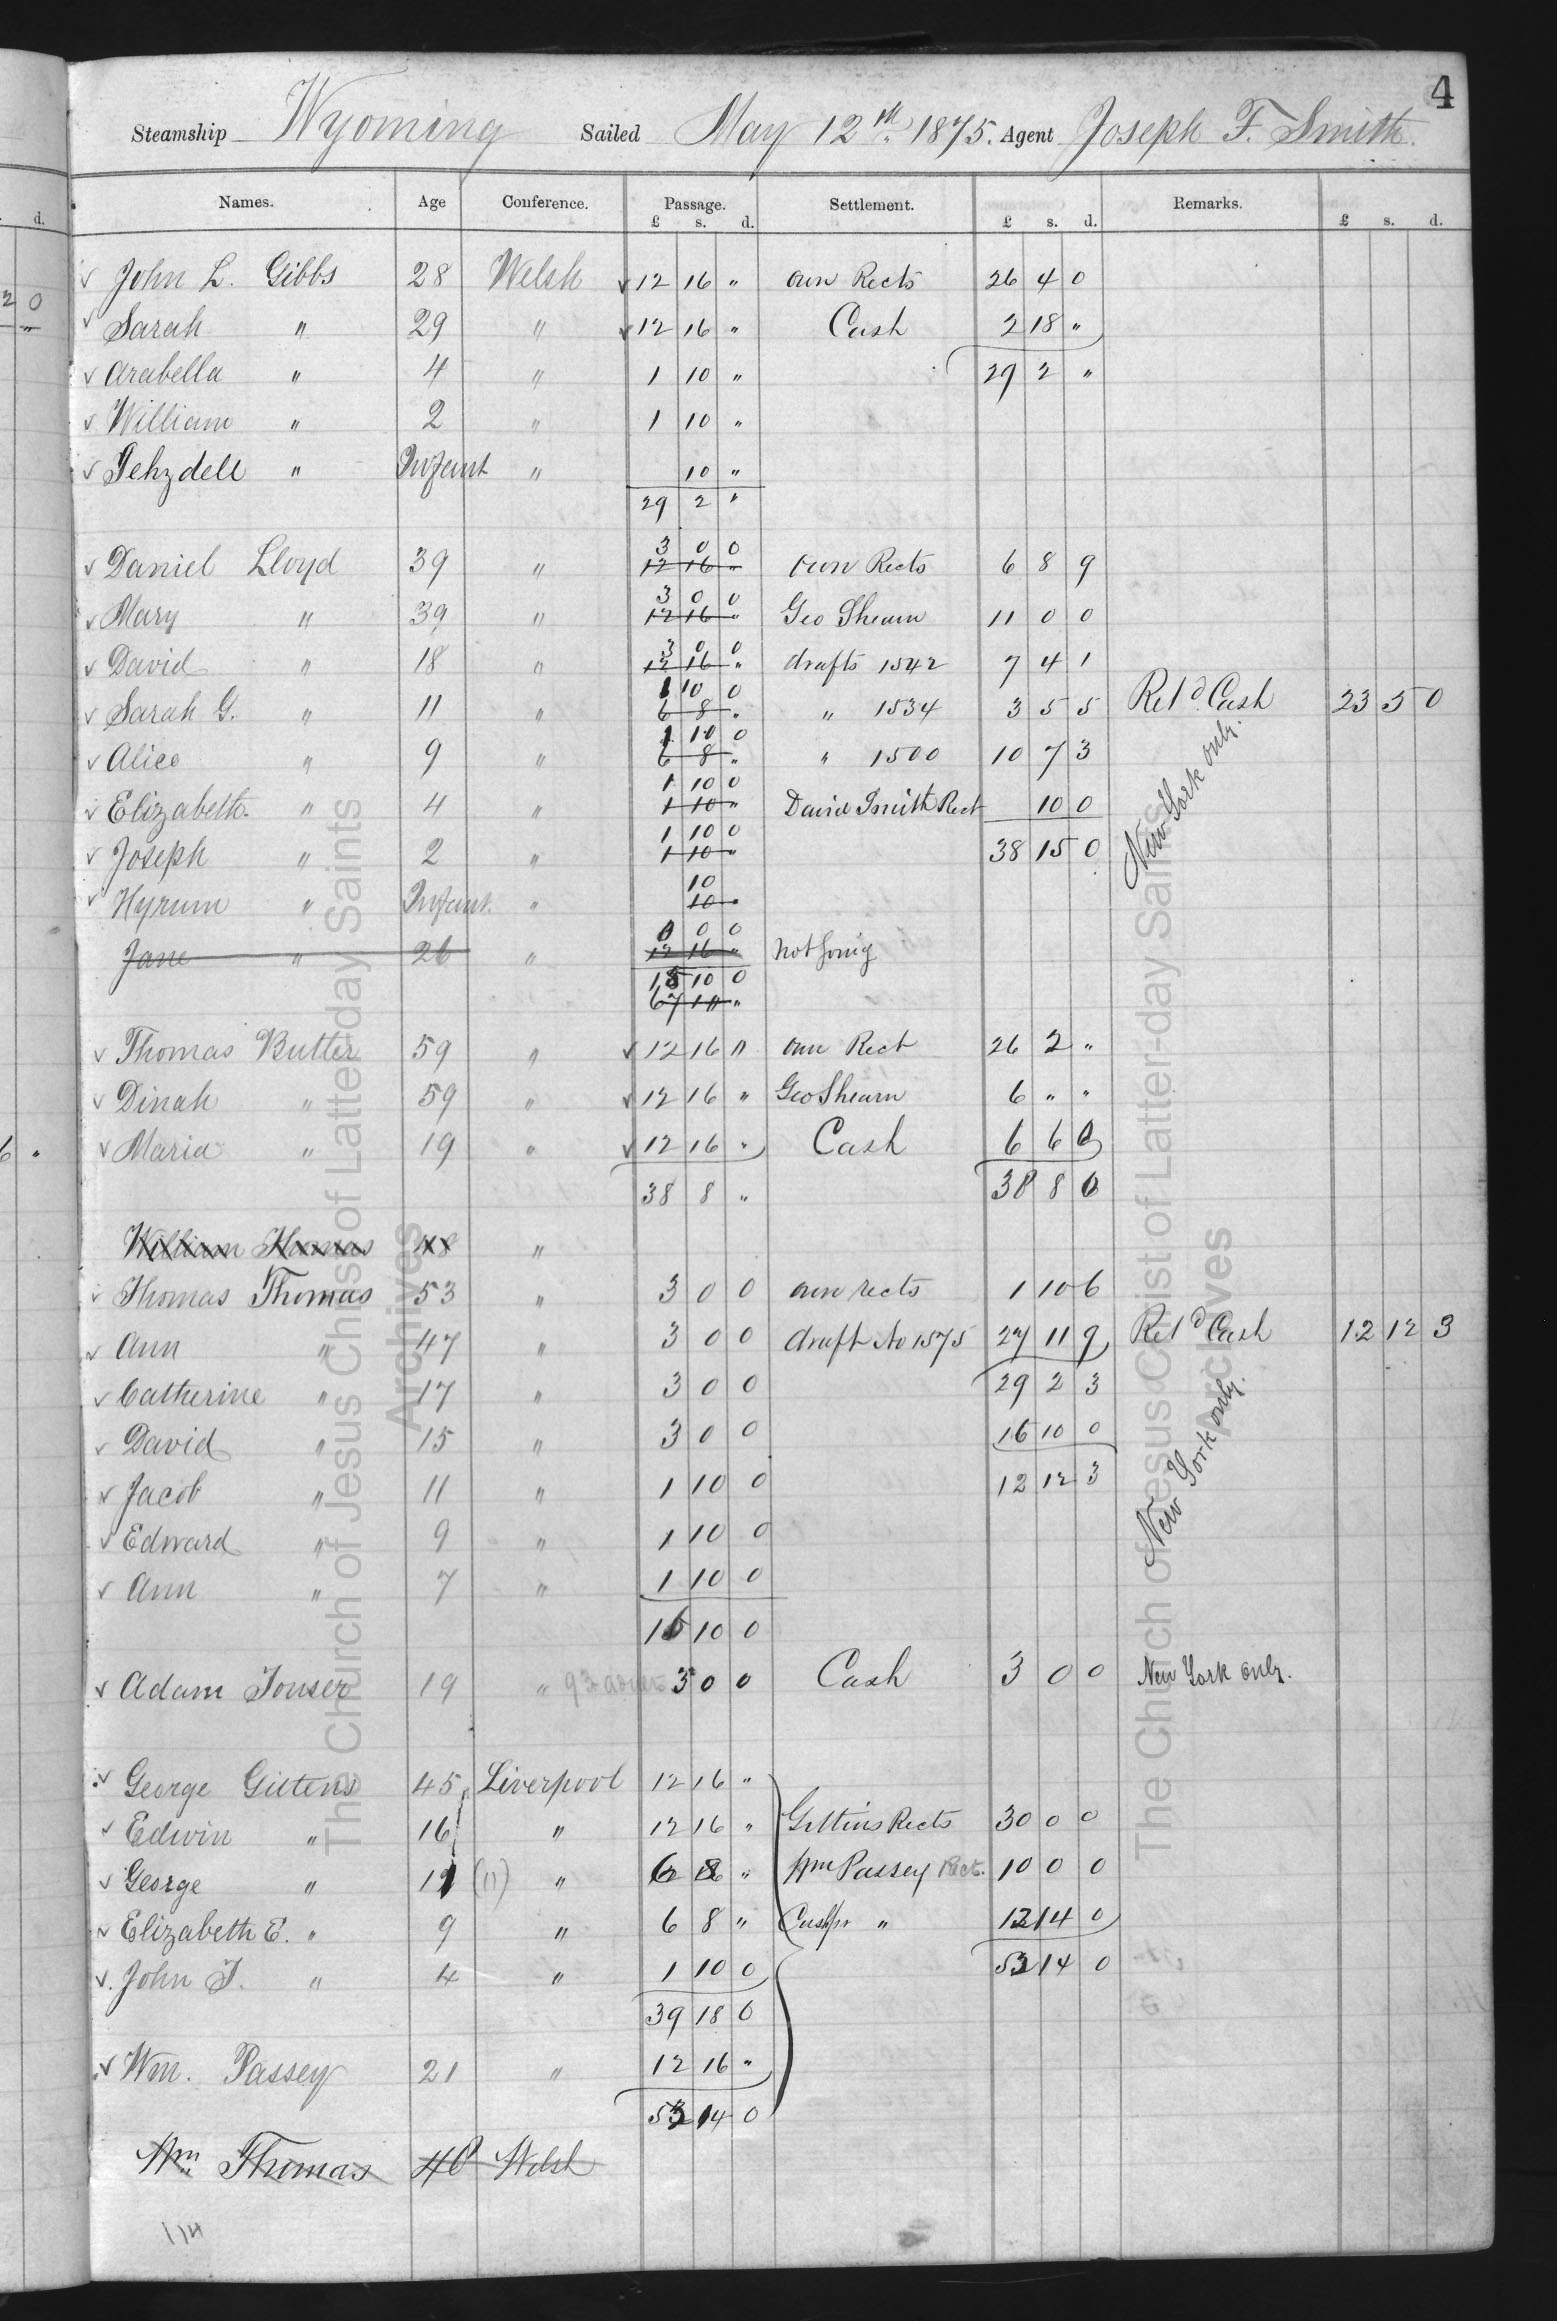 4
Steamship Wyoming Sailed May 12th 1875. Agent Joseph F. Smith.
Names. Age Conference. Passage. Settlement. Remarks.
£ s. d. £ s. d. £ s. d.
John L. Gibbs 28 Welsh 12 16 " own Rects 26 4 0
Sarah " 29 " 12 16 " Cash 2 18 "
Arabella " 4 " 1 10 " 29 2 "
William " 2 " 1 10 "
" Infant " 10 "
29 2 "
3 0 0
Daniel Lloyd 39 " 12 16 " own Rects 6 8 9
3 0 0
Mary " 39 " 12 16 " Geo Shearn 11 0 0
3 0 0
David " 18 " 12 16 " drafts 1542 7 4 1
1 10 0
Sarah G. " 11 " 6 8 " " 1534 3 5 5 Retd Cash 23 5 0
1 10 0
Alice " 9 " 6 8 " " 1500 10 7 3
1 10 0
Elizabeth " 4 " 1 10 " David Smith Rect 10 0
1 10 0
Joseph " 2 " 1 10 " 38 15 0
New York only.
10
Hyrum " Infant. " 10 "
0 0 0
Jane " 26 " 12 16 " not going
15 10 0
67 "
Thomas Butter 59 " 12 16 " own Rect 26 2 "
Dinah " 59 " 12 16 " Geo Shearn 6 " "
Maria " 19 " 12 16 " Cash 6 6 0
38 8 " 38 8 0
William Thomas 48 "
Thomas Thomas 53 " 3 0 0 own rects 1 10 6
Ann " 47 " 3 0 0 draft No 1575 27 11 9 Retd Cash 12 12 3
Catherine " 17 " 3 0 0 29 2 3
David " 15 " 3 0 0 16 10 0
Jacob " 11 " 1 10 0 12 12 3
New York only.
Edward " 9 " 1 10 0
Ann " 7 " 1 10 0
16 10 0
Adam 19 " 3 0 0 Cash 3 0 0 New York only.
George Gittens 45 Liverpool 12 16 "
Edwin " 16 " 12 16 " Gittins Rects 30 0 0
George " 11 (11) " 6 8 " Wm Passey Rect. 10 0 0
Elizabeth E. " 9 " 6 8 " Cash pr " 12 14 0
John J. " 4 " 1 10 0 52 14 0
39 18 0
Wm. Passey 21 " 12 16 "
52 14 0
Wm Thomas 48 Welsh
114
d.
2 0
"
6 "
The Church of Jesus Christ of Latter-day Saints
Archives
The Church of Jesus Christ of Latter-day Saints
Archives